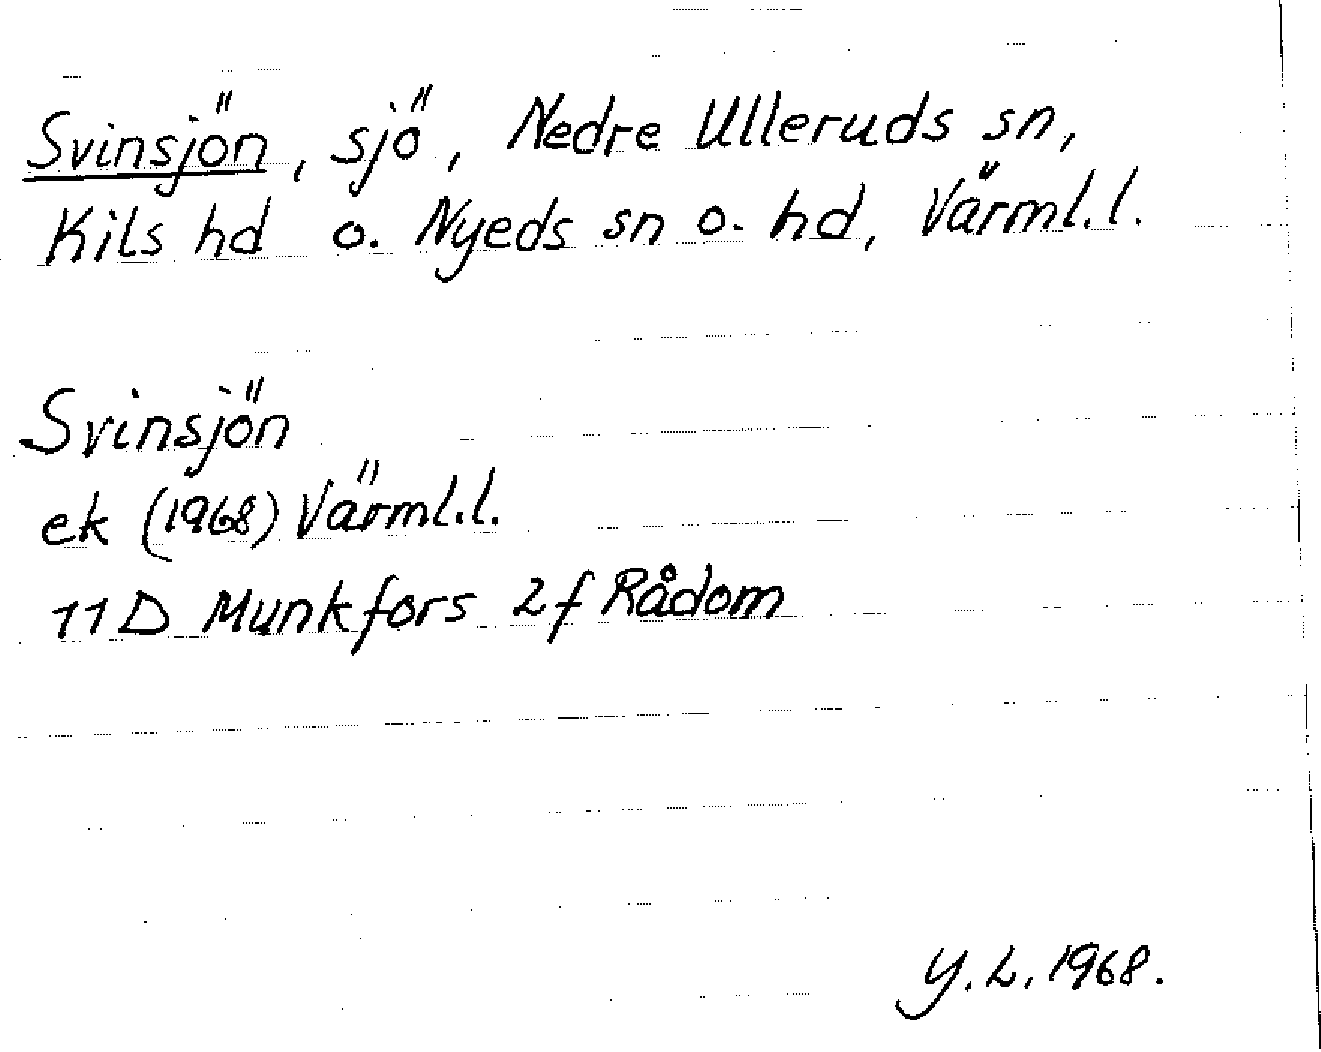 Svinsjön, sjö, Nedre Ulleruds sn,
Kils hd o. Nyeds sn o. hd, Värml.l.
Svinsjön
ek (1968) Värml.l.
11D Munkfors 2f Rådom
Y.L. 1968.